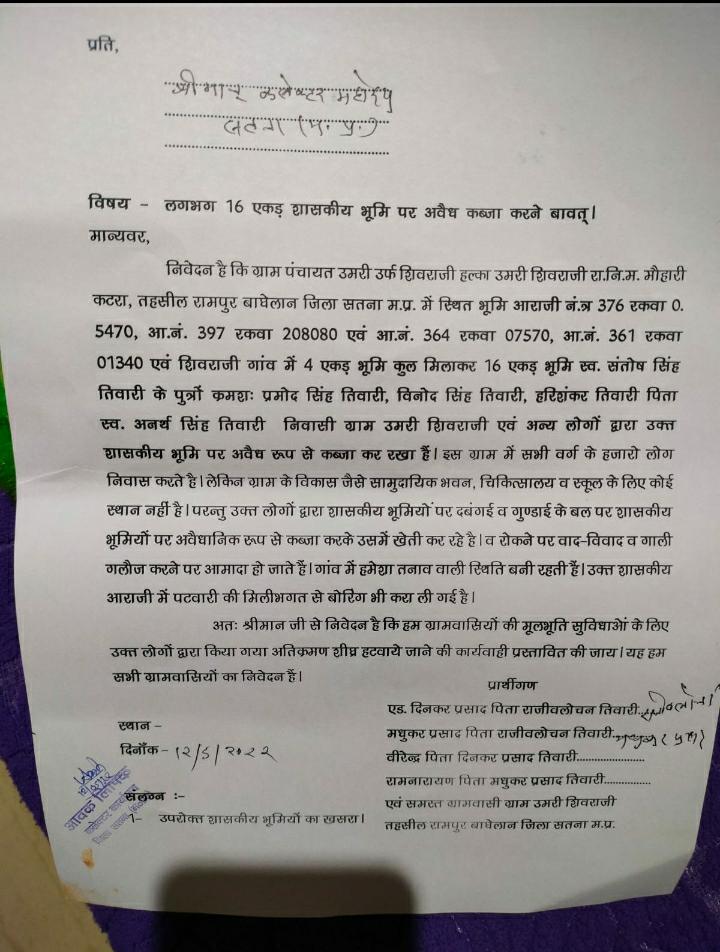 प्रति,
श्रीमान् कलेक्टर महोदय
सतना (म. प्र.)
विषय - लगभग 16 एकड़ शासकीय भूमि पर अवैध कब्जा करने बावत्।
मान्यवर,
निवेदन है कि ग्राम पंचायत उमरी उर्फ शिवराजी हल्का उमरी शिवराजी रा.नि.म. मौहारी
कटरा, तहसील रामपुर बाघेलान जिला सतना म.प्र. में स्थित भूमि आराजी नं.त्र 376 रकवा 0.
5470, आ.नं. 397 रकवा 208080 एवं आ.नं. 364 रकवा 07570, आ.नं. 361 रकवा
01340 एवं शिवराजी गांव में 4 एकड़ भूमि कुल मिलाकर 16 एकड़ भूमि स्व. संतोष सिंह
तिवारी के पुत्रों क्रमशः प्रमोद सिंह तिवारी, विनोद सिंह तिवारी, हरिशंकर तिवारी पिता
स्व. अनर्थ सिंह तिवारी निवासी ग्राम उमरी शिवराजी एवं अन्य लोगों द्वारा उक्त
शासकीय भूमि पर अवैध रूप से कब्जा कर रखा हैं। इस ग्राम में सभी वर्ग के हजारो लोग
निवास करते है। लेकिन ग्राम के विकास जैसे सामुदायिक भवन, चिकित्सालय व स्कूल के लिए कोई
स्थान नहीं है। परन्तु उक्त लोगों द्वारा शासकीय भूमियों पर दबंगई व गुण्डाई के बल पर शासकीय
भूमियों पर अवैधानिक रूप से कब्जा करके उसमें खेती कर रहे है। व रोकने पर वाद-विवाद व गाली
गलौज करने पर आमादा हो जाते हैं। गांव में हमेशा तनाव वाली स्थिति बनी रहती हैं। उक्त शासकीय
आराजी में पटवारी की मिलीभगत से बोरिंग भी करा ली गई है।
अतः श्रीमान जी से निवेदन है कि हम ग्रामवासियों की मूलभूति सुविधाओं के लिए
उक्त लोगों द्वारा किया गया अतिक्रमण शीघ्र हटवाये जाने की कार्यवाही प्रस्तावित की जाय। यह हम
सभी ग्रामवासियों का निवेदन हैं।
प्रार्थीगण
एड. दिनकर प्रसाद पिता राजीवलोचन तिवारी
मधुकर प्रसाद पिता राजीवलोचन तिवारी
वीरेन्द्र पिता दिनकर प्रसाद तिवारी
रामनारायण पिता मधुकर प्रसाद तिवारी
एवं समस्त ग्रामवासी ग्राम उमरी शिवराजी
तहसील रामपुर बाघेलान जिला सतना म.प्र.
स्थान -
दिनाँक - 12/5/2022
आवक लिपिक
संलग्न :-
1- उपरोक्त शासकीय भूमियों का खसरा।